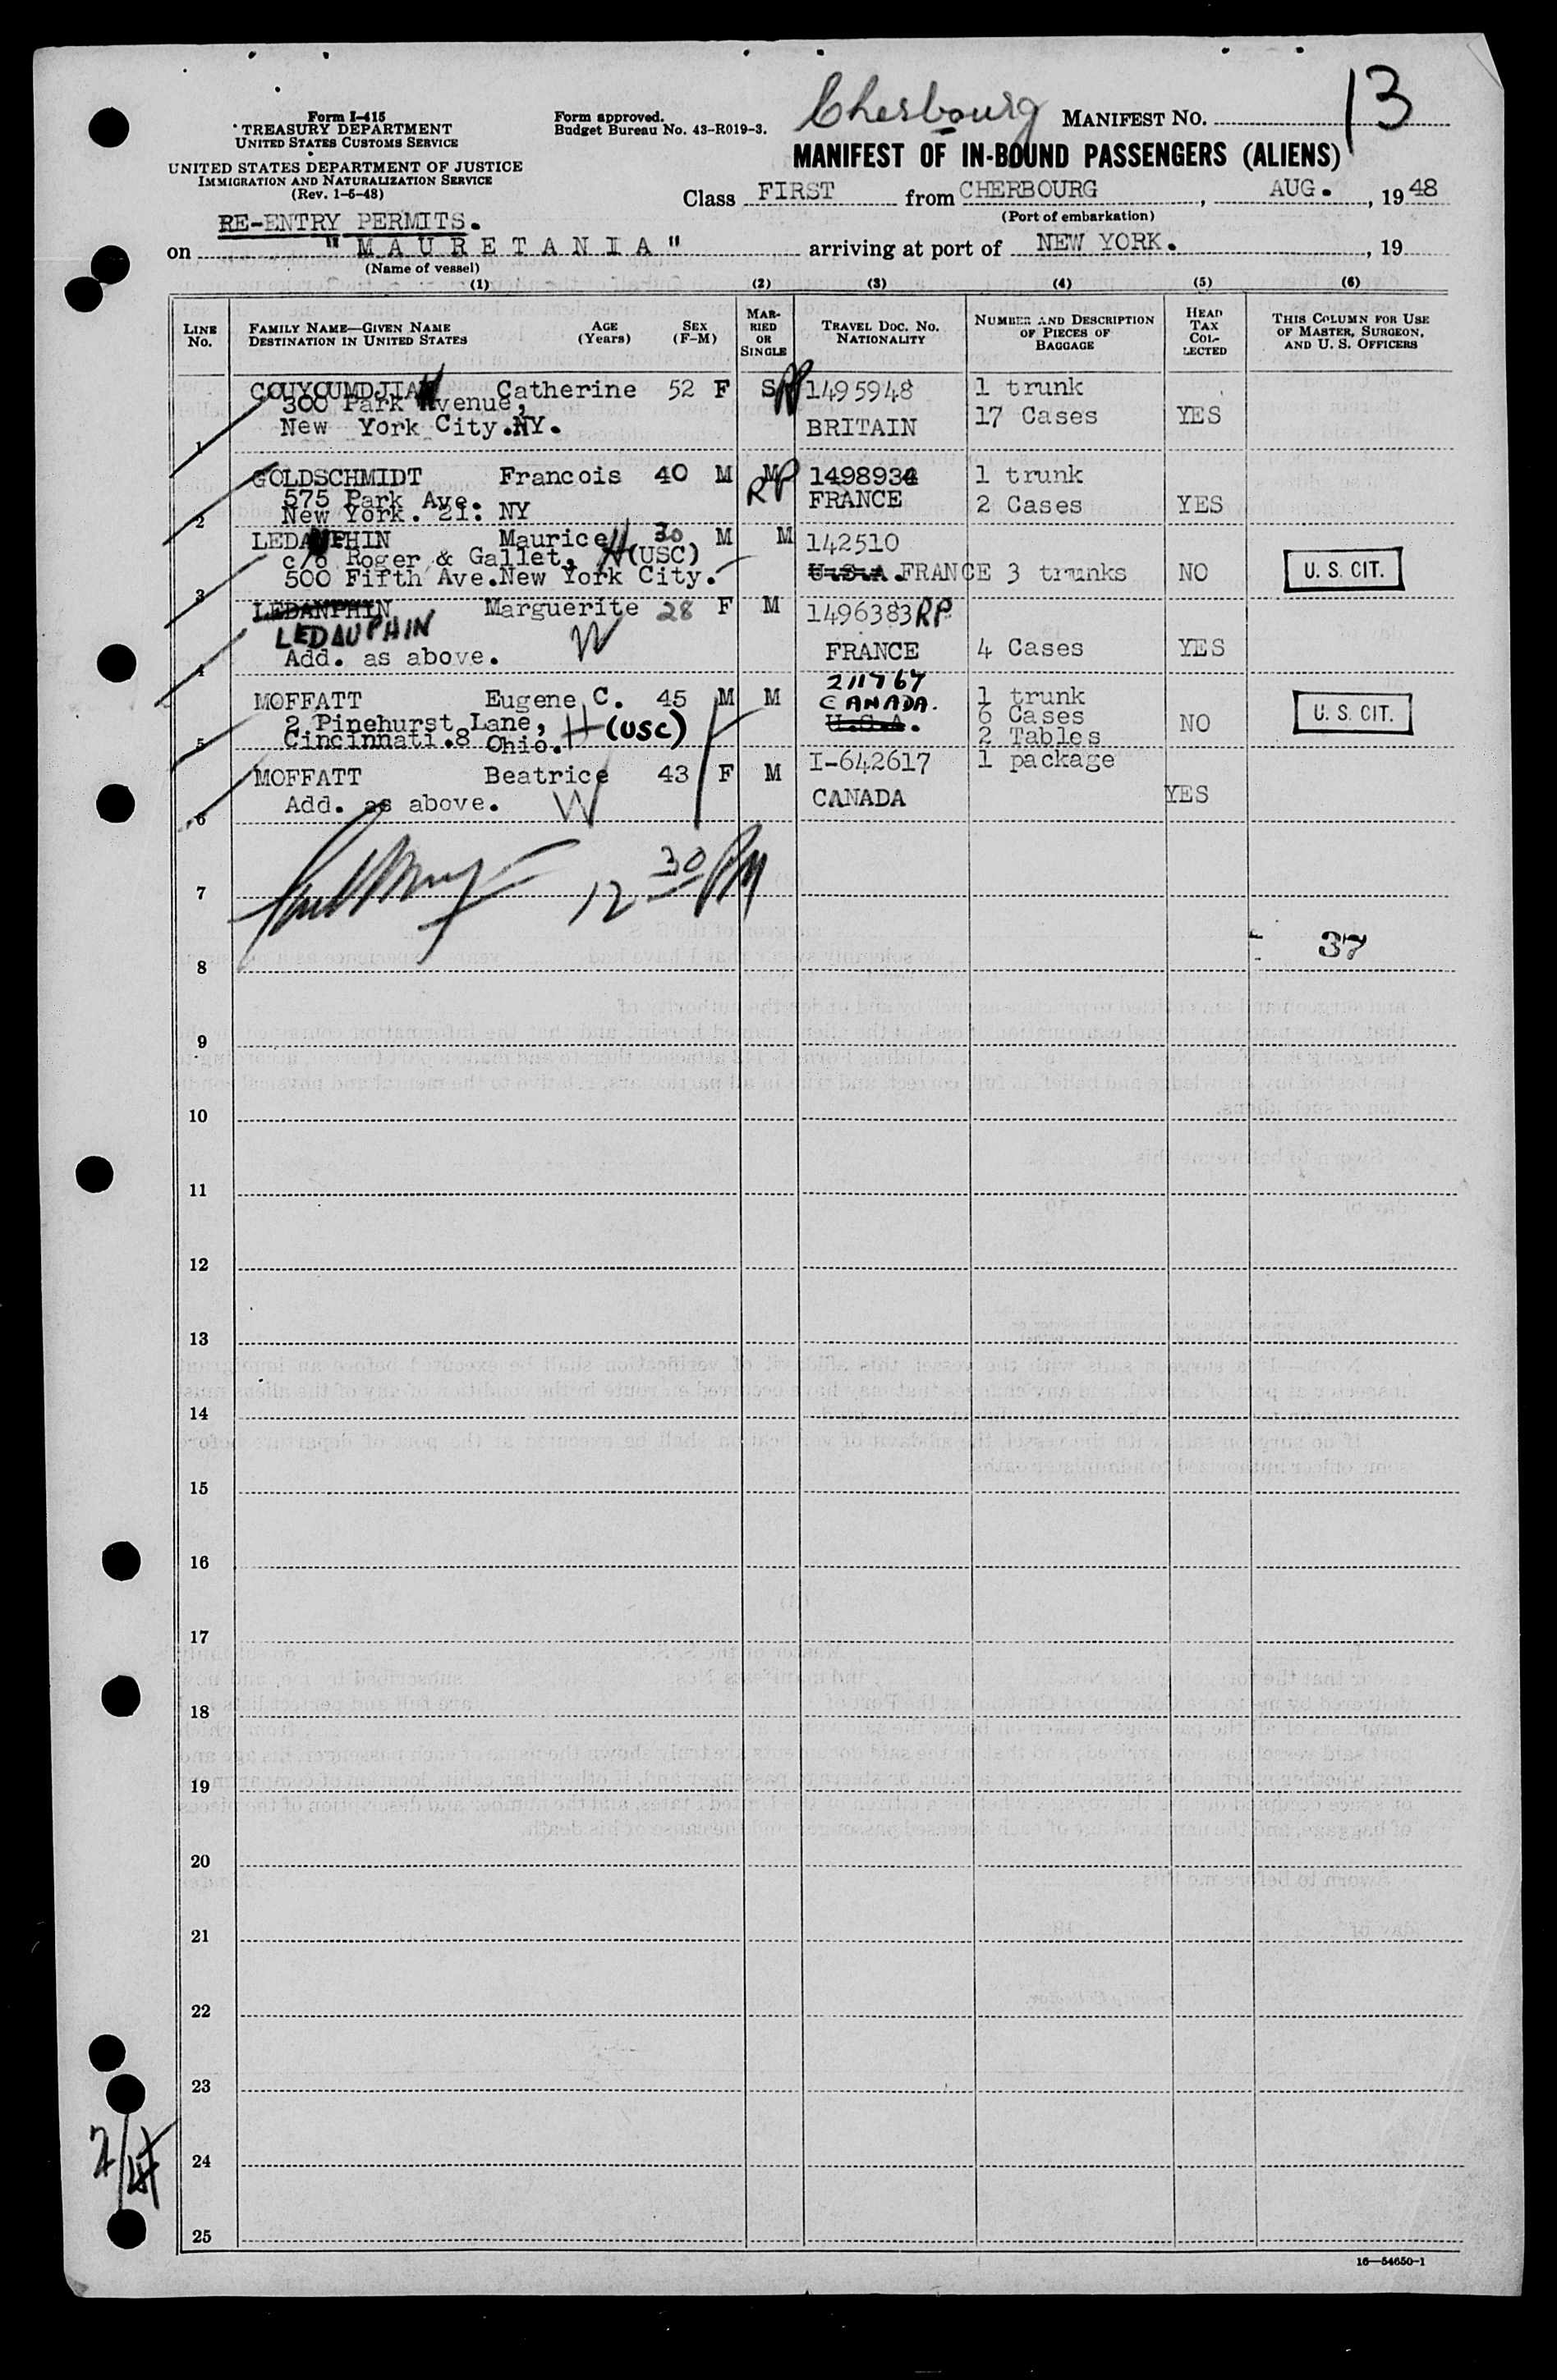 Cherbourg
13
Form I-415
TREASURY DEPARTMENT
UNITED STATES CUSTOMS SERVICE
UNITED STATES DEPARTMENT OF JUSTICE
IMMIGRATION AND NATURALIZATION SERVICE
(Rev. 1-5-48)
Form approved.
Budget Bureau No. 43-R019-3.
MANIFEST NO.
MANIFEST OF IN-BOUND PASSENGERS (ALIENS)
Class FIRST from CHERBOURG, AUG., 1948
(Port of embarkation)
RE-ENTRY PERMITS.
on "MAURETANIA" arriving at port of NEW YORK., 19
(Name of vessel)
(1) (2) (3) (4) (5) (6)
LINE No.
FAMILY NAME—GIVEN NAME
DESTINATION IN UNITED STATES
AGE (Years)
SEX (F-M)
MARRIED OR SINGLE
TRAVEL DOC. NO.
NATIONALITY
NUMBER AND DESCRIPTION OF PIECES OF BAGGAGE
HEAD TAX COLLECTED
THIS COLUMN FOR USE OF MASTER, SURGEON, AND U. S. OFFICERS
COUYOUMDJIAN Catherine 52 F S RP 1495948 1 trunk
300 Park Avenue,
New York City.NY. BRITAIN 17 Cases YES
1
GOLDSCHMIDT Francois 40 M M RP 1498934 1 trunk
575 Park Ave. FRANCE 2 Cases YES
New York. 21. NY
2
LEDAUPHIN Maurice H 30 M M 142510
c/o Roger & Gallet, H (USC)
500 Fifth Ave.New York City. U.S.A. FRANCE 3 trunks NO U. S. CIT.
3
LEDANPHIN Marguerite 28 F M 1496383 RP
LEDAUPHIN W
Add. as above. FRANCE 4 Cases YES
4
211767
MOFFATT Eugene C. 45 M M CANADA. 1 trunk
2 Pinehurst Lane, H (USC) U.S.A. 6 Cases NO U. S. CIT.
Cincinnati.8 Ohio. 2 Tables
5
MOFFATT Beatrice 43 F M I-642617 1 package
Add. as above. W CANADA YES
6
12 30 PM
7
37
8
9
10
11
12
13
14
15
16
17
18
19
20
21
22
23
24
25
16—54650-1